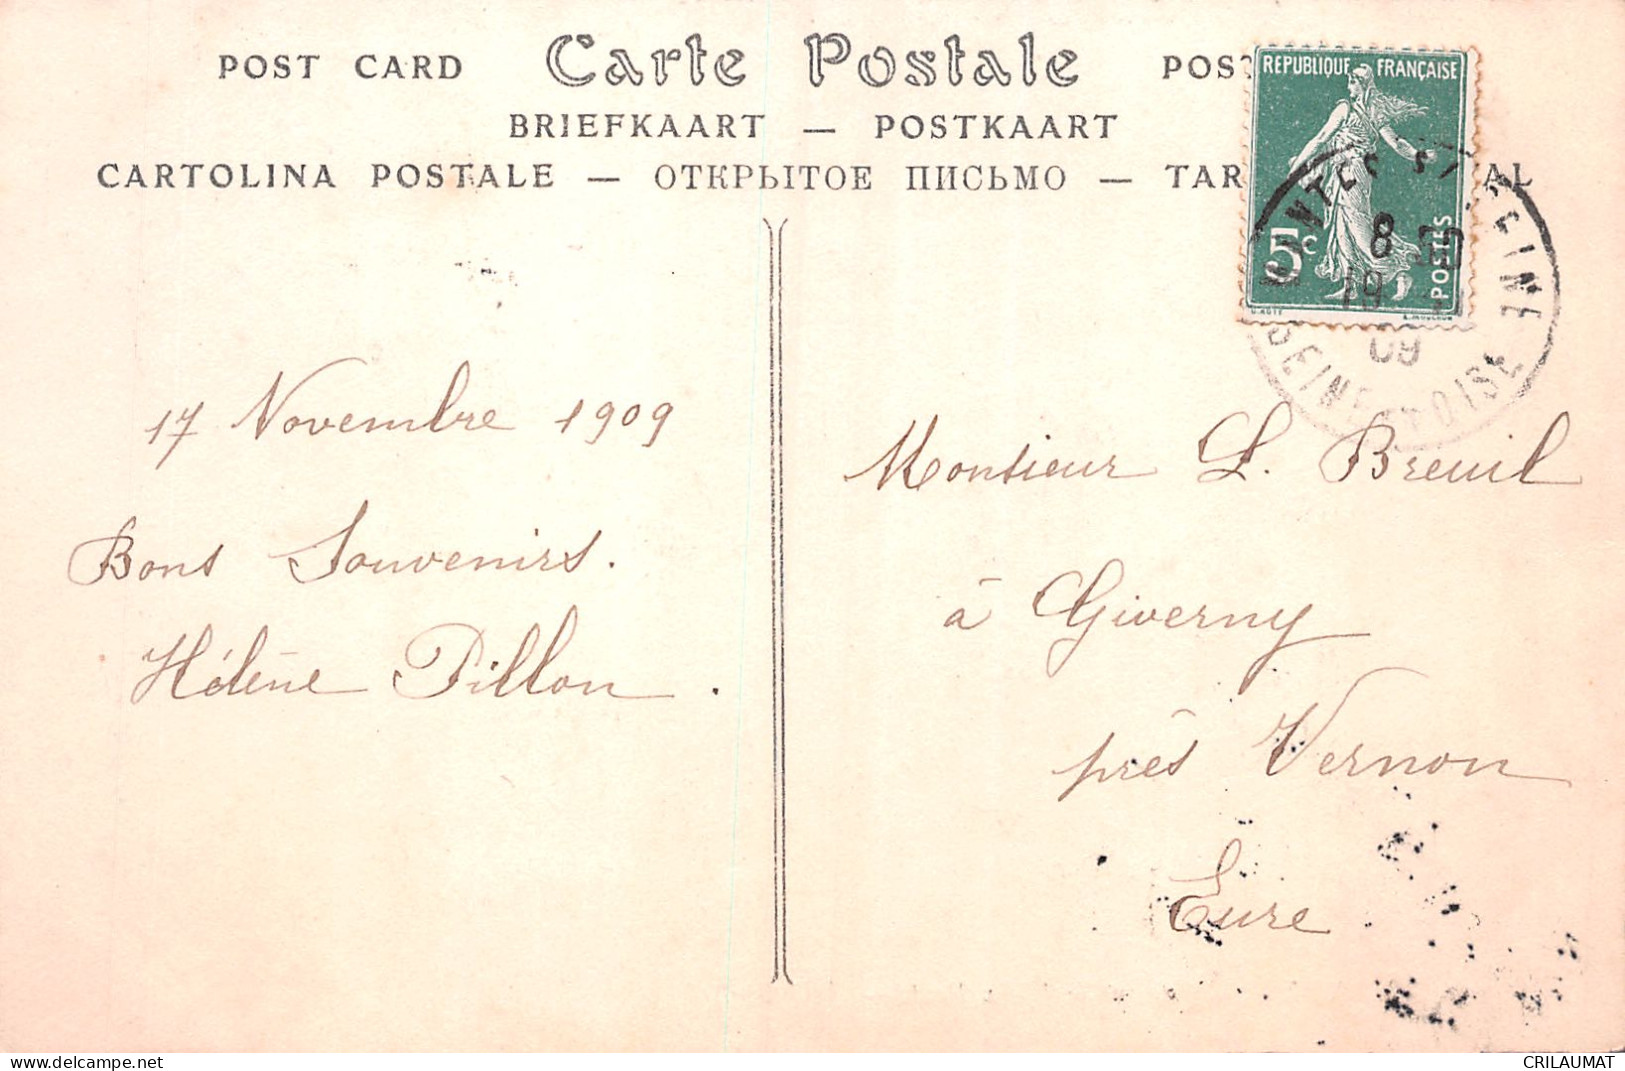 POST CARD Carte Postale POS
BRIEFKAART — POSTKAART
CARTOLINA POSTALE — ОТКРЫТОЕ ПИСЬМО — TAR AL
REPUBLIQUE FRANÇAISE
5c
POSTES
8
19
09
SEINE
17 Novembre 1909
Bons Souvenirs.
Hélène Pillon.
Monsieur L. Breuil
à Giverny
près Vernon
Eure
www.delcampe.net
CRILAUMAT